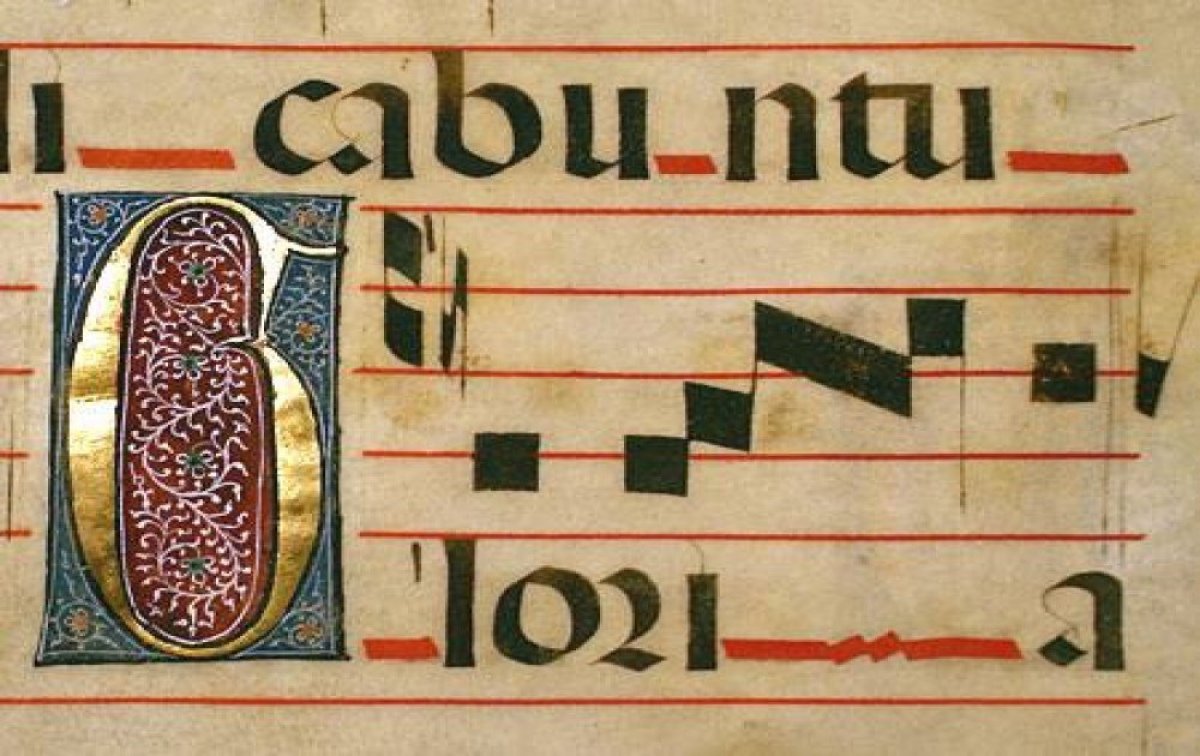 li cabuntu
Gloria